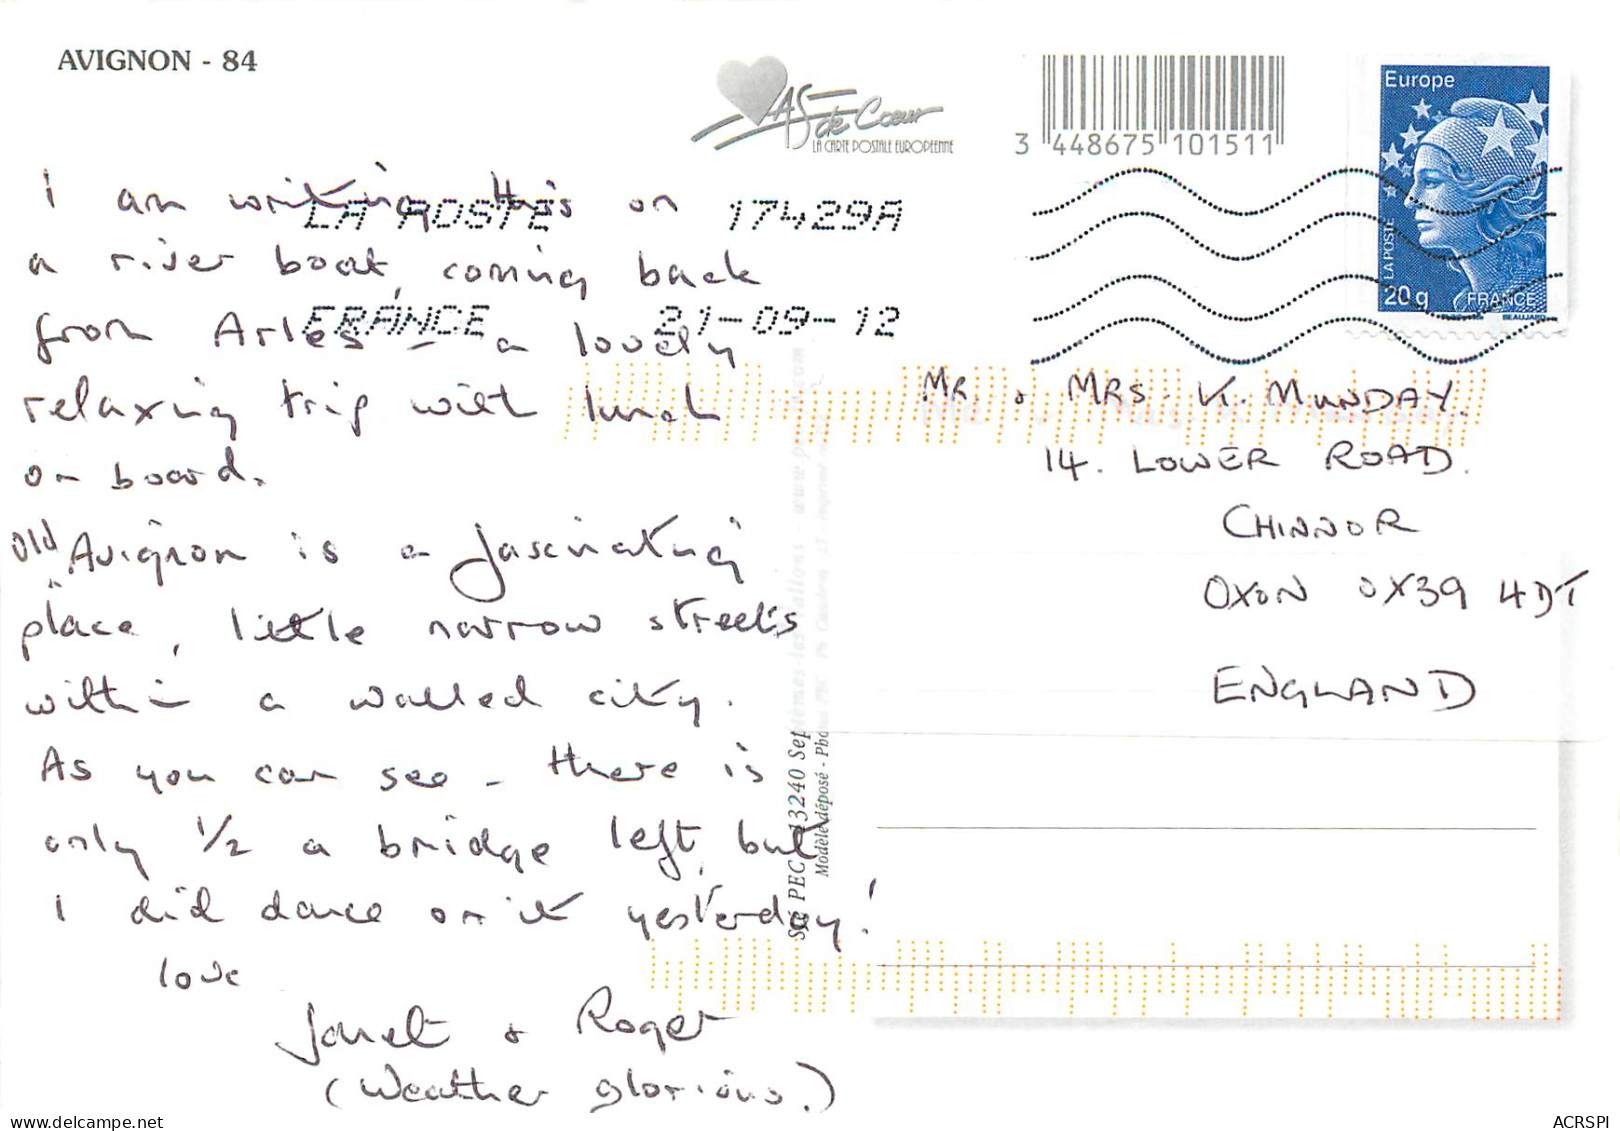 AVIGNON - 84
AS de Coeur
LA CARTE POSTALE EUROPEENNE
3 448675 101511
Europe
LA POSTE
20g FRANCE
BEAUJARD
LA POSTE 17429A
FRANCE 21-09-12
I am writing this on
a river boat, coming back
from Arles - a lovely
relaxing trip with lunch
on board.
Old Avignon is a fascinating
place, little narrow streets
within a walled city.
As you can see - there is
only 1/2 a bridge left, but
I did dance on it yesterday!
love
Janet & Roger
(Weather glorious.)
MR. & MRS. K. MUNDAY.
14. LOWER ROAD.
CHINNOR
OXON OX39 4DT
ENGLAND
Sté PEC 13240 Septèmes-les-Vallons - www.p .com
Modèle déposé - Photos PEC
ACRSPI